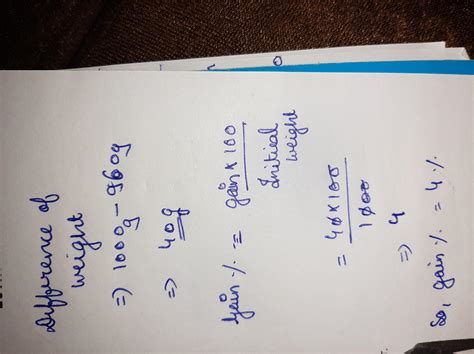 Difference of
weight
=) 1000g - 960g
=) 40g
Gain % = gain x 100
Initical
weight
= 40 x 100
1000
=) 4
So, gain % = 4 %